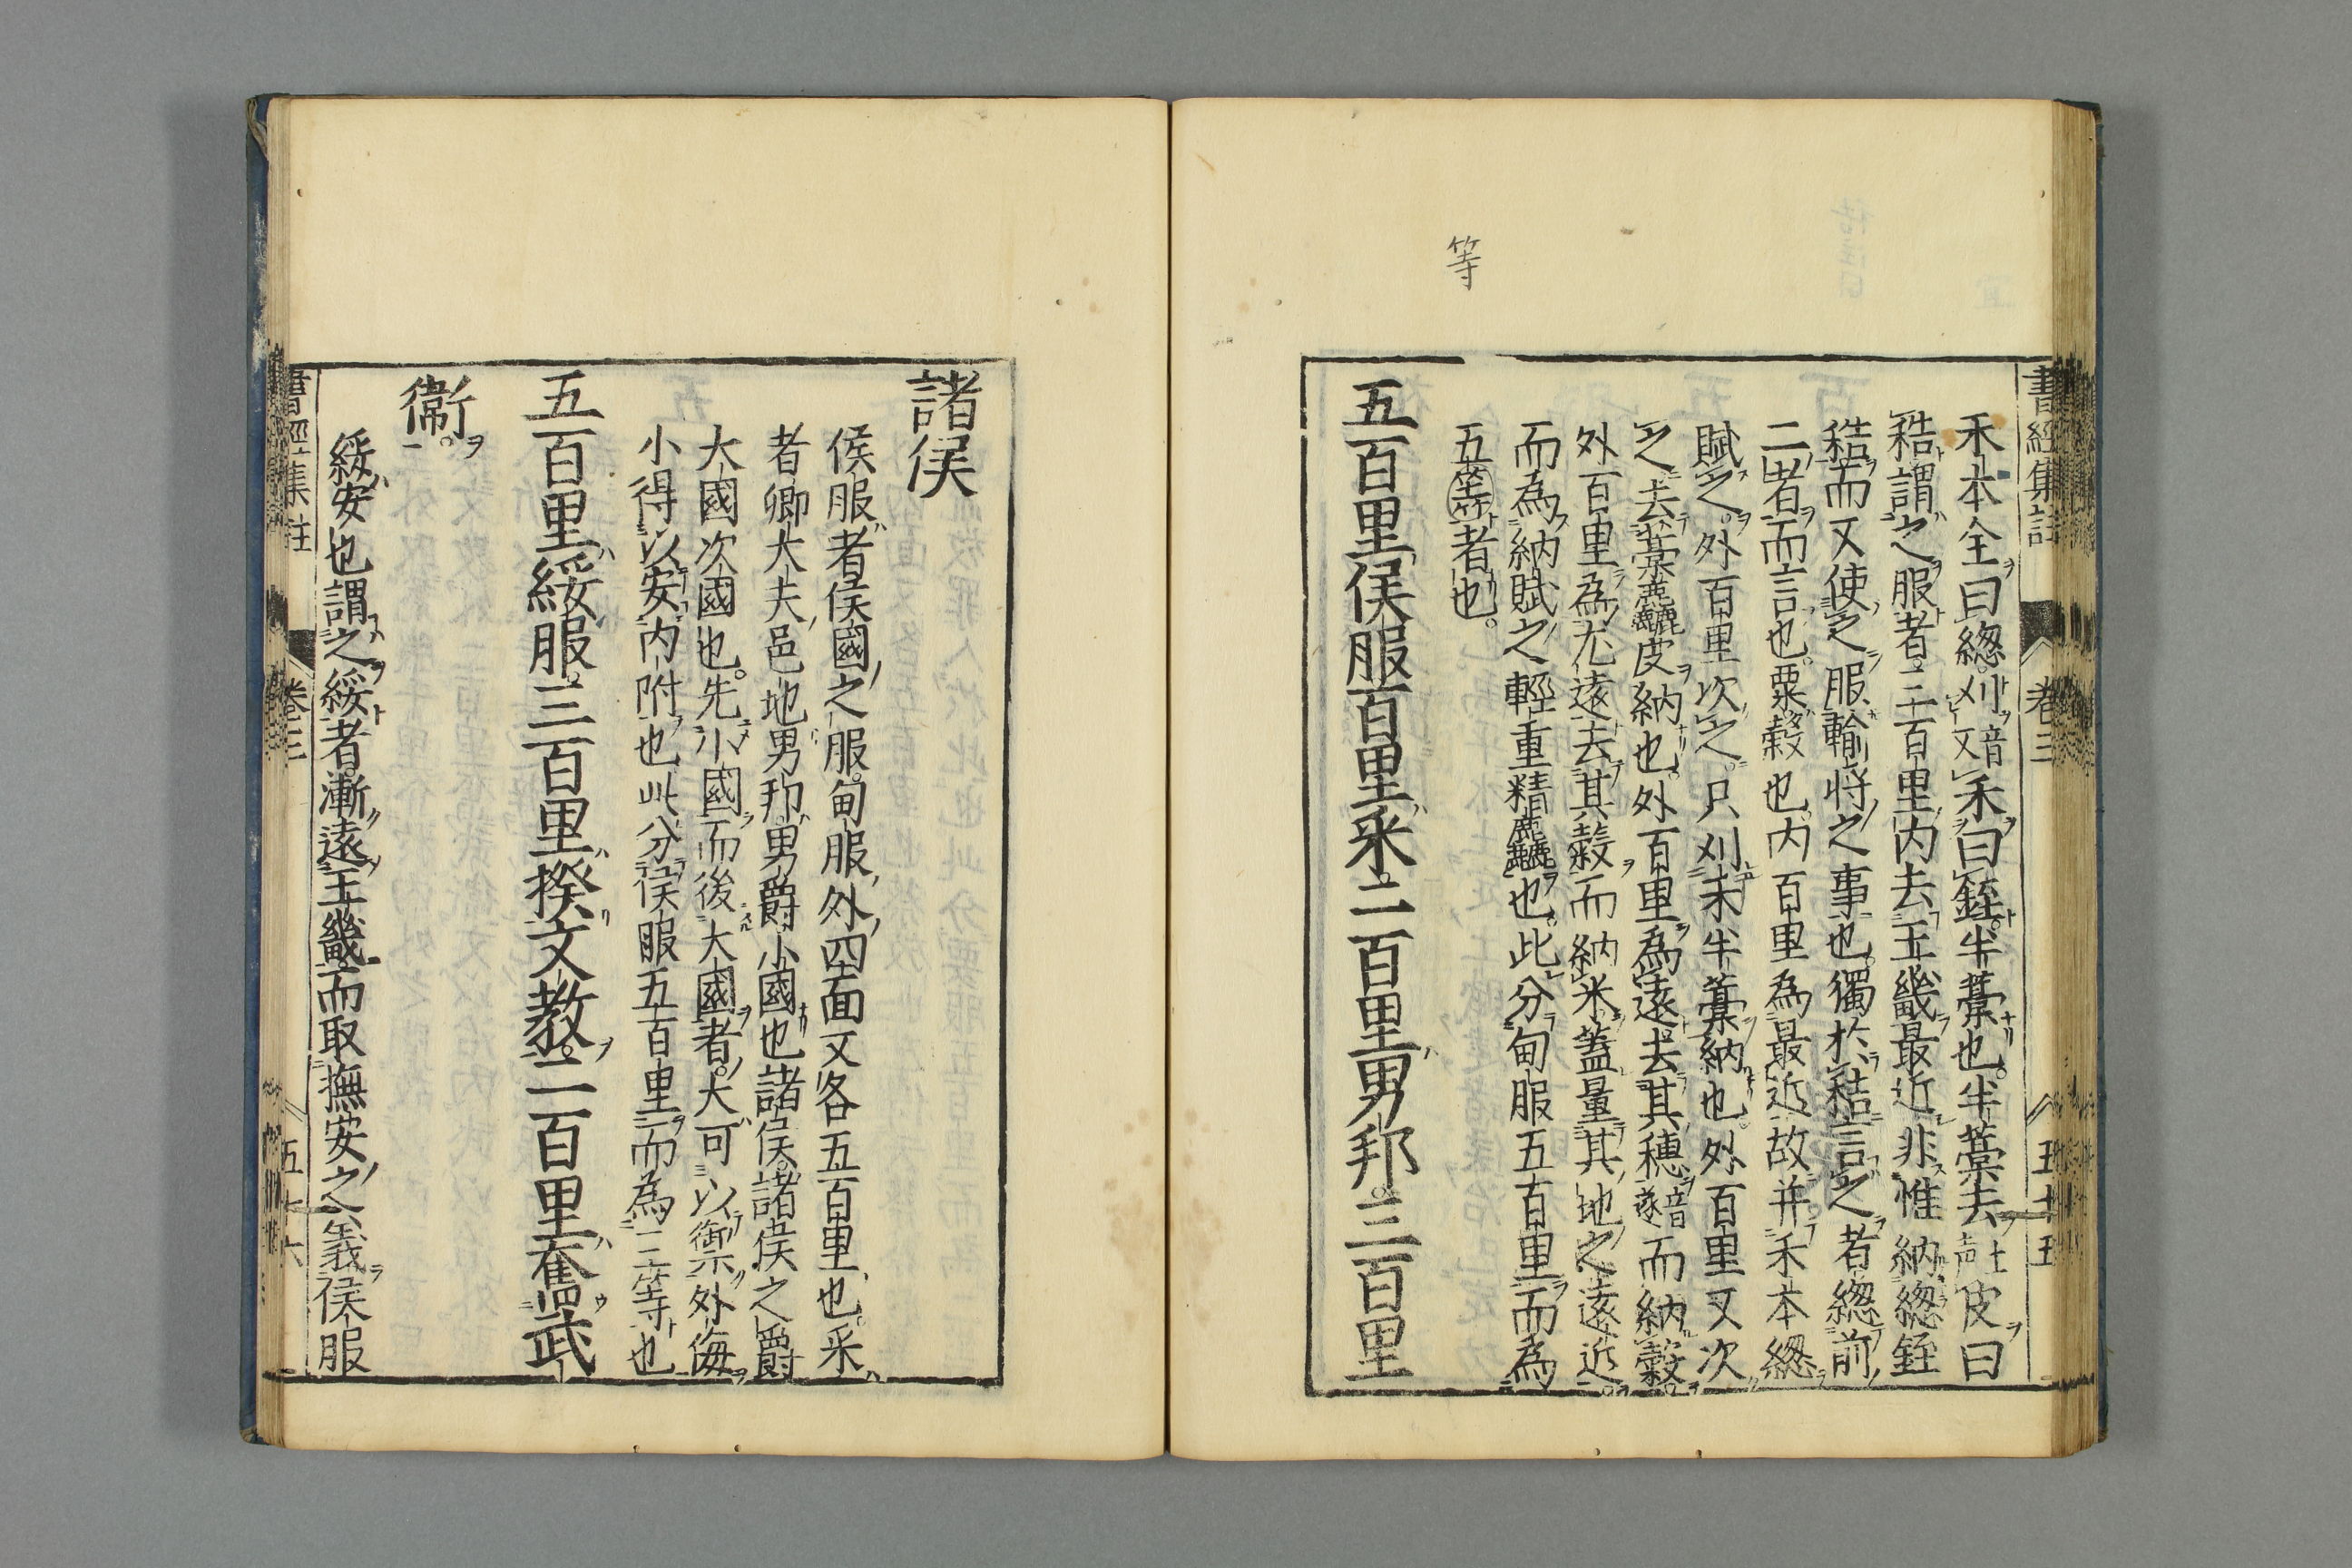 書經集註 卷三 五十五
禾本全曰緫刈刈音乂禾曰銍半藁也半藁去去上聲皮曰
秸謂之服者三百里内去王畿最近非惟納緫銍
秸而又使之服輸將之事也獨於秸言之者緫前
二者而言也粟糓也内百里為最近故并禾本緫
賦之外百里次之只刈禾半藁納也外百里又次
之去藁麄皮納也外百里為遠去其穗穗音遂而納糓
外百里為尤遠去其糓而納米蓋量其地之遠近
而為納賦之輕重精麤也此分甸服五百里而為
五等者也
等
五百里侯服百里采二百里男邦三百里
諸侯
侯服者侯國之服甸服外四面又各五百里也采
者卿大夫邑地男邦男爵小國也諸侯諸侯之爵
大國次國也先小國而後大國者大可以禦外侮
小得以安内附也此分侯服五百里而為三等也
五百里綏服三百里揆文教二百里奮武
衞
綏安也謂之綏者漸遠王畿而取撫安之義侯服
書經集註 卷三 五十六